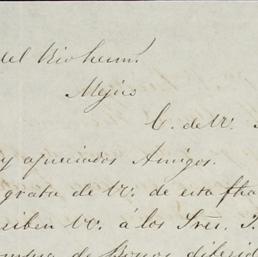 del Rio herm.
Mejico
C. de VV.
y apreciados Amigos.
grata de VV. de esta fha
criben VV. á los Sres. J.
de Bonos diferid